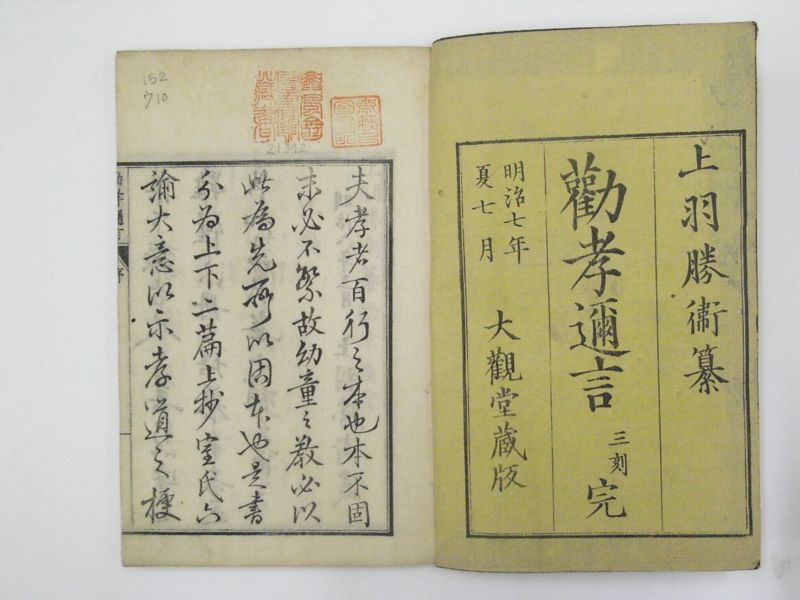 上羽勝衛纂
勸孝邇言 三刻 完
明治七年
夏七月
大觀堂藏版
夫孝者百行之本也本不固
末必不繁故幼童之教必以
此為先所以固本也是書
分為上下二篇上抄室氏六
諭大意以示孝道之梗
152
ウ10
21392